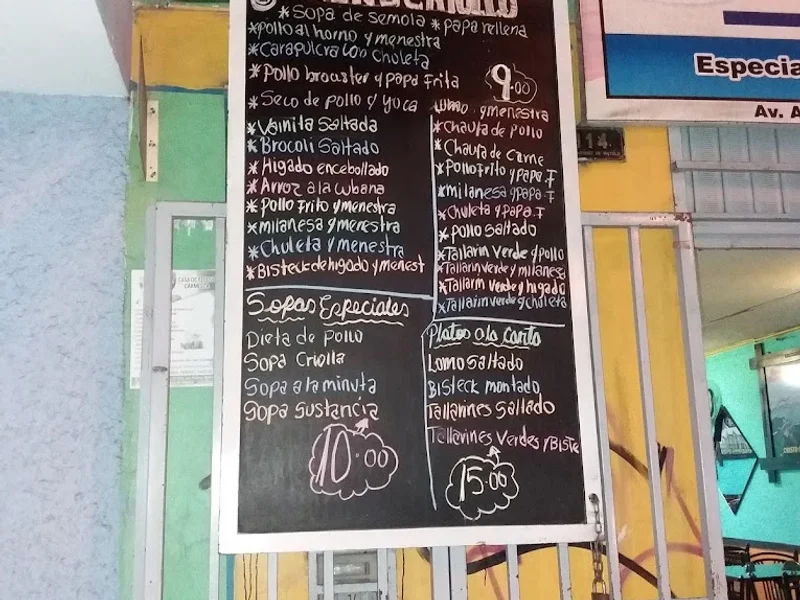 *Sopa de semola *papa rellena
*pollo al horno y menestra
*carapulcra con chuleta
*Pollo broaster y papa frita
9.00
*Seco de pollo y yuca
Lomo y menestra
*Vainita Saltada
*Brocoli Saltado
*Higado encebollado
*Arroz a la cubana
*pollo frito y menestra
*milanesa y menestra
*Chuleta y menestra
*Bisteck de higado y menest
*Chaufa de pollo
*Chaufa de Carne
*Pollo Frito y papa F
*milanesa y papa F
*Chuleta y papa F
*pollo saltado
*Tallarin verde y pollo
*Tallarin verde y milanesa
*Tallarin verde y higado
*Tallarin verde y chuleta
Sopas Especiales
Dieta de Pollo
Sopa Criolla
Sopa a la minuta
Sopa sustancia
10.00
Platos a la Carta
Lomo Saltado
Bisteck montado
Tallarines Saltado
Tallarines Verdes y Biste
15.00
Especia
Av. A
114.